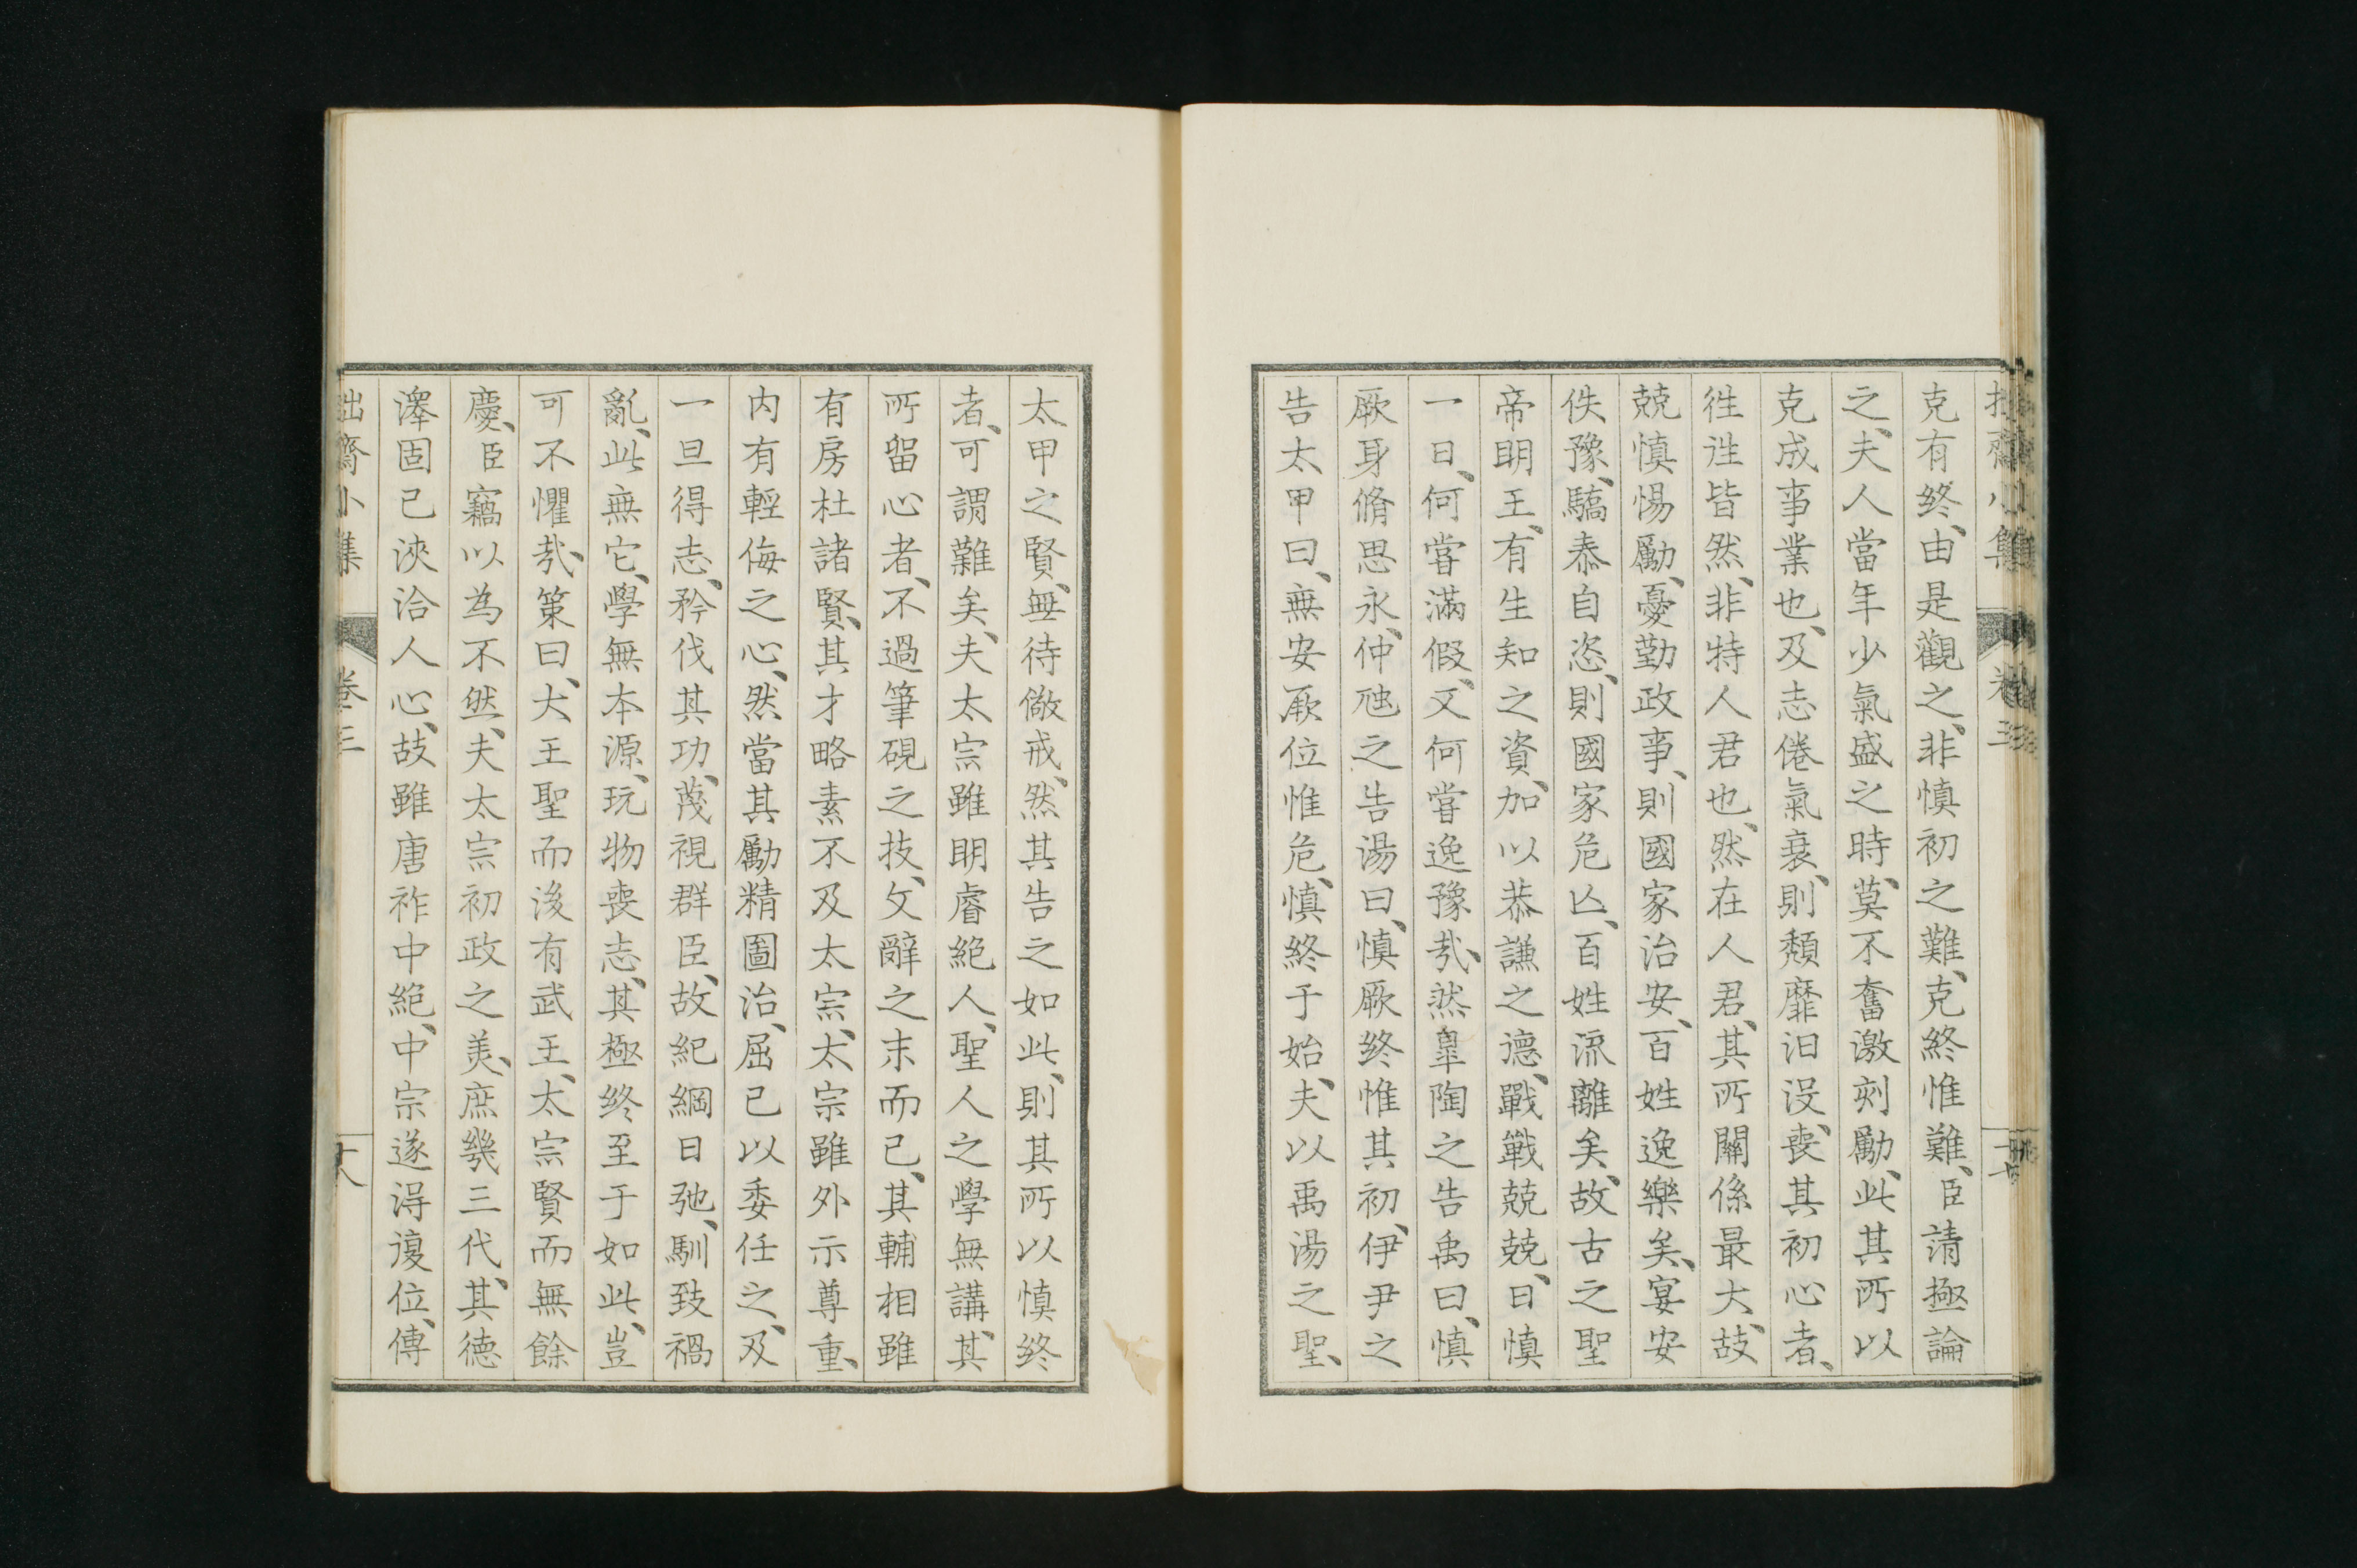 克有終、由是觀之、非慎初之難、克終惟難、臣請極論
之、夫人當年少氣盛之時、莫不奮激刻勵、此其所以
克成事業也、及志倦氣衰、則頹靡汩沒、喪其初心者、
往往皆然、非特人君也、然在人君、其所關係最大、故
兢慎惕勵、憂勤政事、則國家治安、百姓逸樂矣、宴安
佚豫、驕泰自恣、則國家危亾、百姓流離矣、故古之聖
帝明王、有生知之資、加以恭謙之德、戰戰兢兢、日慎
一日、何嘗滿假、又何嘗逸豫哉、然皐陶之告禹曰、慎
厥身脩思永、仲虺之告湯曰、慎厥終惟其初、伊尹之
告太甲曰、無安厥位惟危、慎終于始、夫以禹湯之聖、
太甲之賢、無待儆戒、然其告之如此、則其所以慎終
者、可謂難矣、夫太宗雖明睿絶人、聖人之學無講、其
所留心者、不過筆硯之技、文辭之末而已、其輔相雖
有房杜諸賢、其才略素不及太宗、太宗雖外示尊重、
内有輕侮之心、然當其勵精圖治、屈己以委任之、及
一旦得志、矜伐其功、蔑視群臣、故紀綱日弛、馴致禍
亂、此無它、學無本源、玩物喪志、其極終至于如此、豈
可不懼哉、策曰、大王聖而後有武王、太宗賢而無餘
慶、臣竊以為不然、夫太宗初政之美、庶幾三代、其德
澤固已浹洽人心、故雖唐祚中絶、中宗遂得復位、傳
拙齋小集　卷三